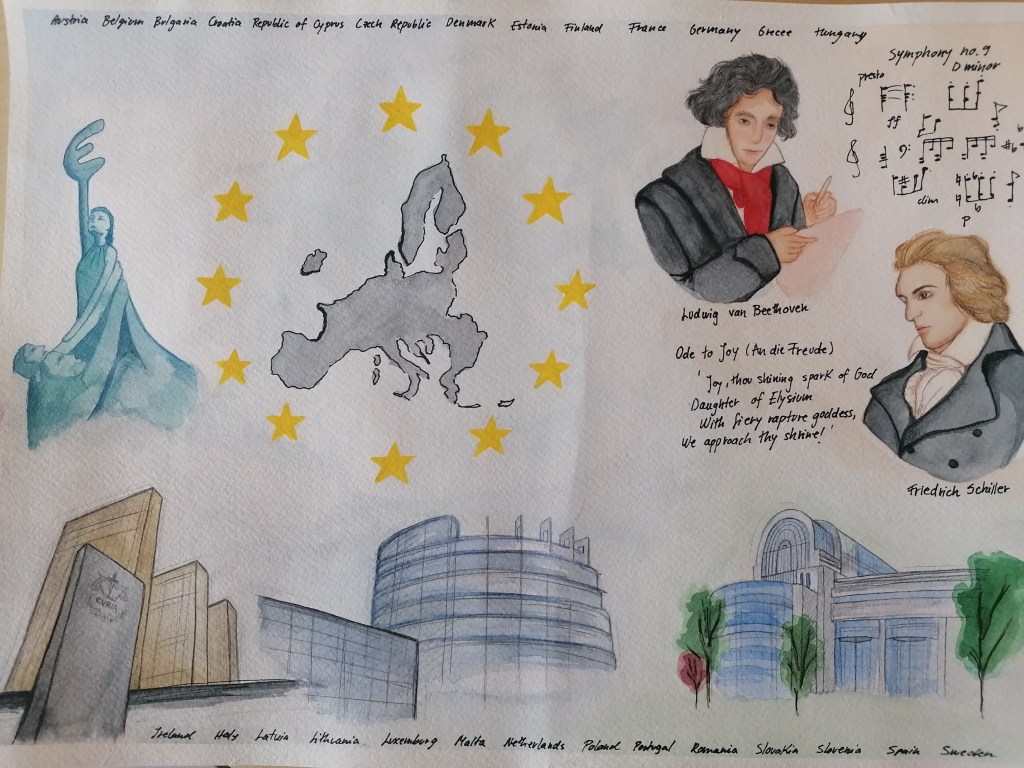 Austria Belgium Bulgaria Croatia Republic of Cyprus Czech Republic Denmark Estonia Finland France Germany Greece Hungary
Symphony no. 9
D minor
presto
ff
dim
p
Ludwig van Beethoven
Ode to Joy (An die Freude)
'Joy, thou shining spark of God
Daughter of Elysium
With fiery rapture goddess,
We approach thy shrine!'
Friedrich Schiller
CVRIA
Ireland Italy Latvia Lithuania Luxemburg Malta Netherlands Poland Portugal Romania Slovakia Slovenia Spain Sweden